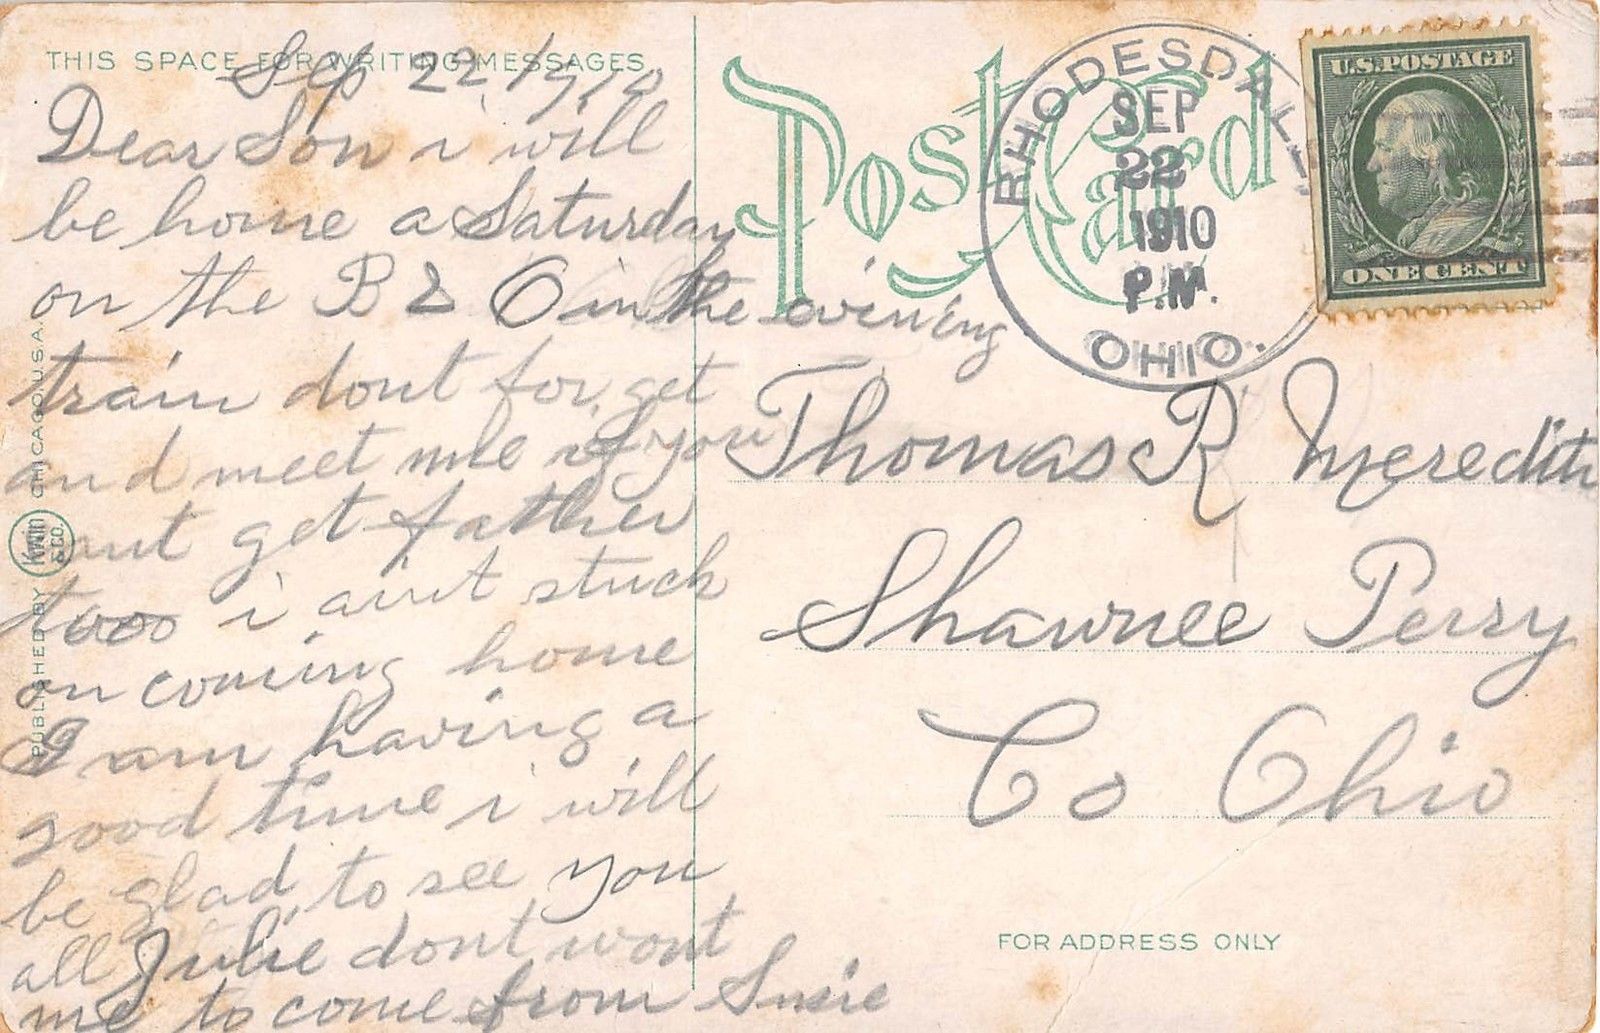 THIS SPACE FOR WRITING MESSAGES
Sep 22 / 1910
Dear Son i will
be home a Saturday
on the B & O in the evining
train dont for get
and meet me if you
get father
tooo i aint stuck
on coming home
I am having a
good time i will
be glad to see you
all Julie dont wont
me to come from Susie
PUBLISHED BY KWIN & CO. CHICAGO U.S.A.
Post Card
RHODESDALE
SEP
22
1910
P.M.
OHIO.
U.S. POSTAGE
ONE CENT
Thomas R Meredith
Shawnee Perry
Co Ohio
FOR ADDRESS ONLY